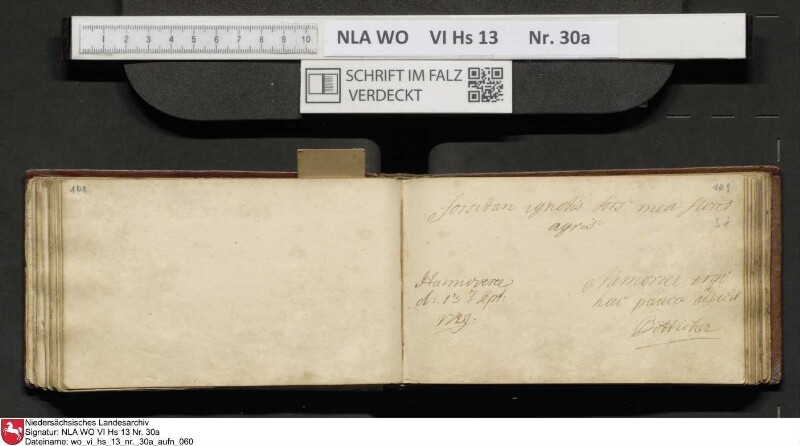 1 2 3 4 5 6 7 8 9 10
NLA WO VI Hs 13 Nr. 30a
SCHRIFT IM FALZ
VERDECKT
101
forsitan ignotis fors mea flores
agris
Hannoverae
1729.
pauca
Bötticher
Niedersächsisches Landesarchiv
Signatur: NLA WO VI Hs 13 Nr. 30a
Dateiname: wo_vi_hs_13_nr._30a_aufn_060